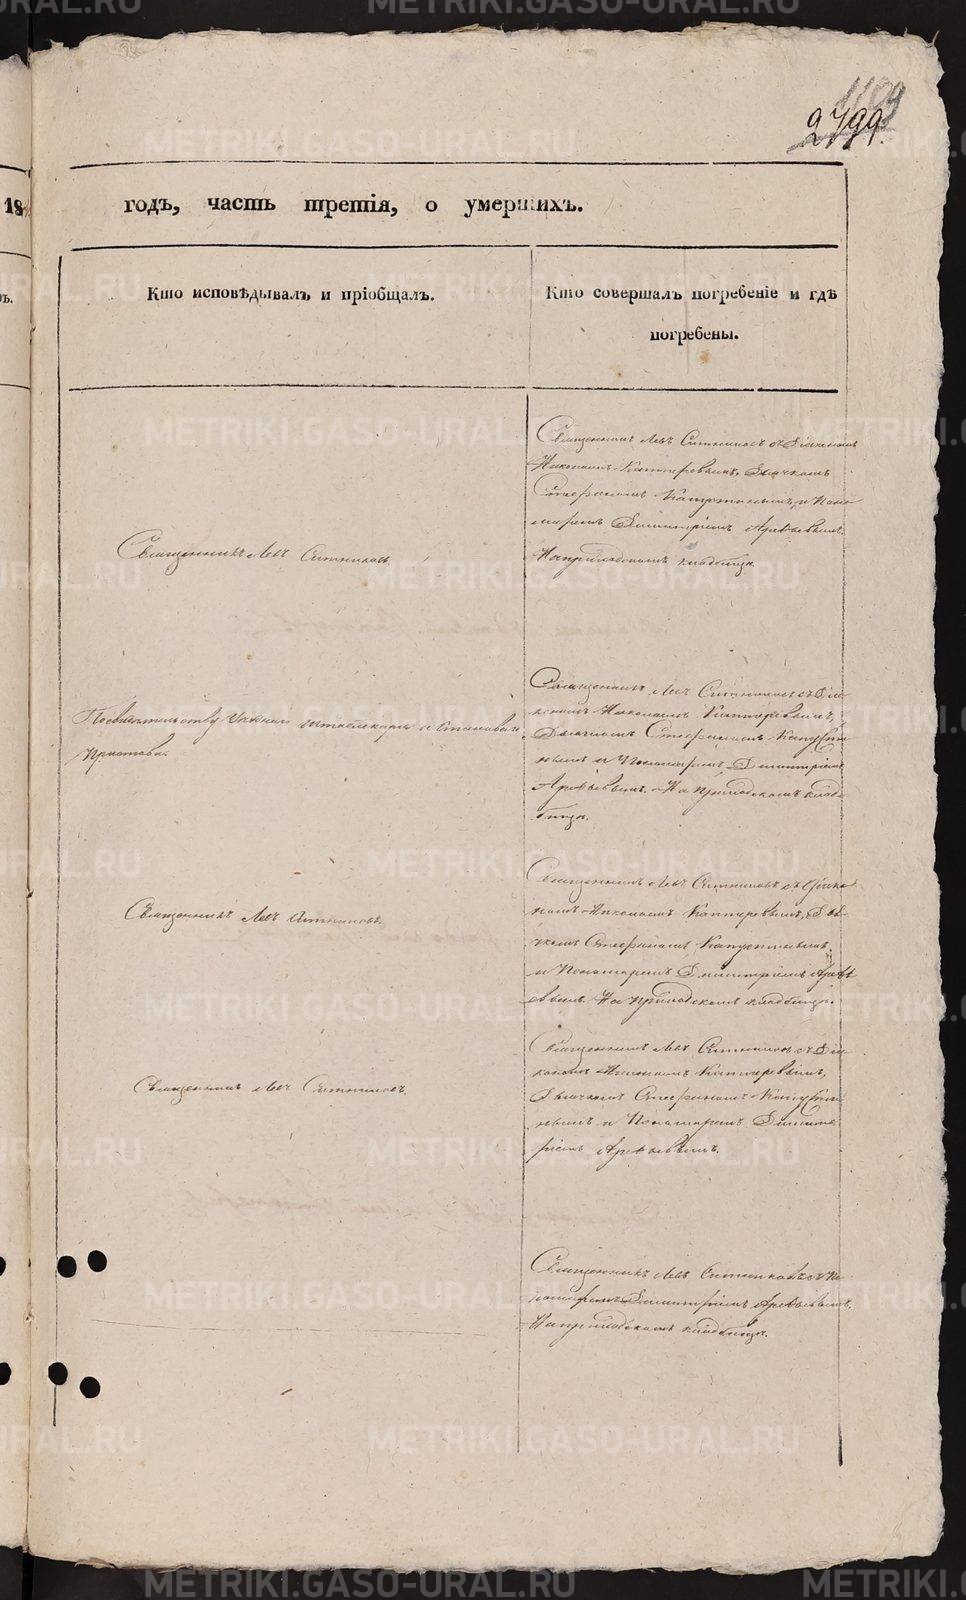 1109
2799.
18
годъ, часть третія, о умершихъ.
Кто исповѣдывалъ и пріобщалъ.
Кто совершалъ погребеніе и гдѣ
погребены.
Священникъ Левъ Ситниковъ.
Священникъ Левъ Ситниковъ съ Діакономъ
Николаемъ Каттеревымъ, Дьячкомъ
Стефаномъ Капустинымъ, и Поно
маремъ Димитріемъ Арефьевымъ.
На приходскомъ кладбищѣ.
По свидѣтельству Уѣзднаго и Становаго
Пристава.
Священникъ Левъ Ситниковъ съ Діа-
кономъ Николаемъ Каттеревымъ,
Дьячкомъ Стефаномъ Капусти
нымъ и Пономаремъ Димитріемъ
Арефьевымъ. На приходскомъ клад-
бищѣ.
Священникъ Левъ Ситниковъ.
Священникъ Левъ Ситниковъ съ Діако
номъ Николаемъ Каттеревымъ, Дья-
чкомъ Стефаномъ Капустинымъ
и Пономаремъ Димитріемъ Арефь
евымъ. На приходскомъ кладбищѣ.
Священникъ Левъ Ситниковъ.
Священникъ Левъ Ситниковъ съ Діа-
кономъ Николаемъ Каттеревымъ,
Дьячкомъ Стефаномъ Капусти
нымъ и Пономаремъ Димит
ріемъ Арефьевымъ.
Священникъ Левъ Ситниковъ съ По
номаремъ Димитріемъ Арефьевымъ.
На приходскомъ кладбищѣ.
METRIKI.GASO-URAL.RU